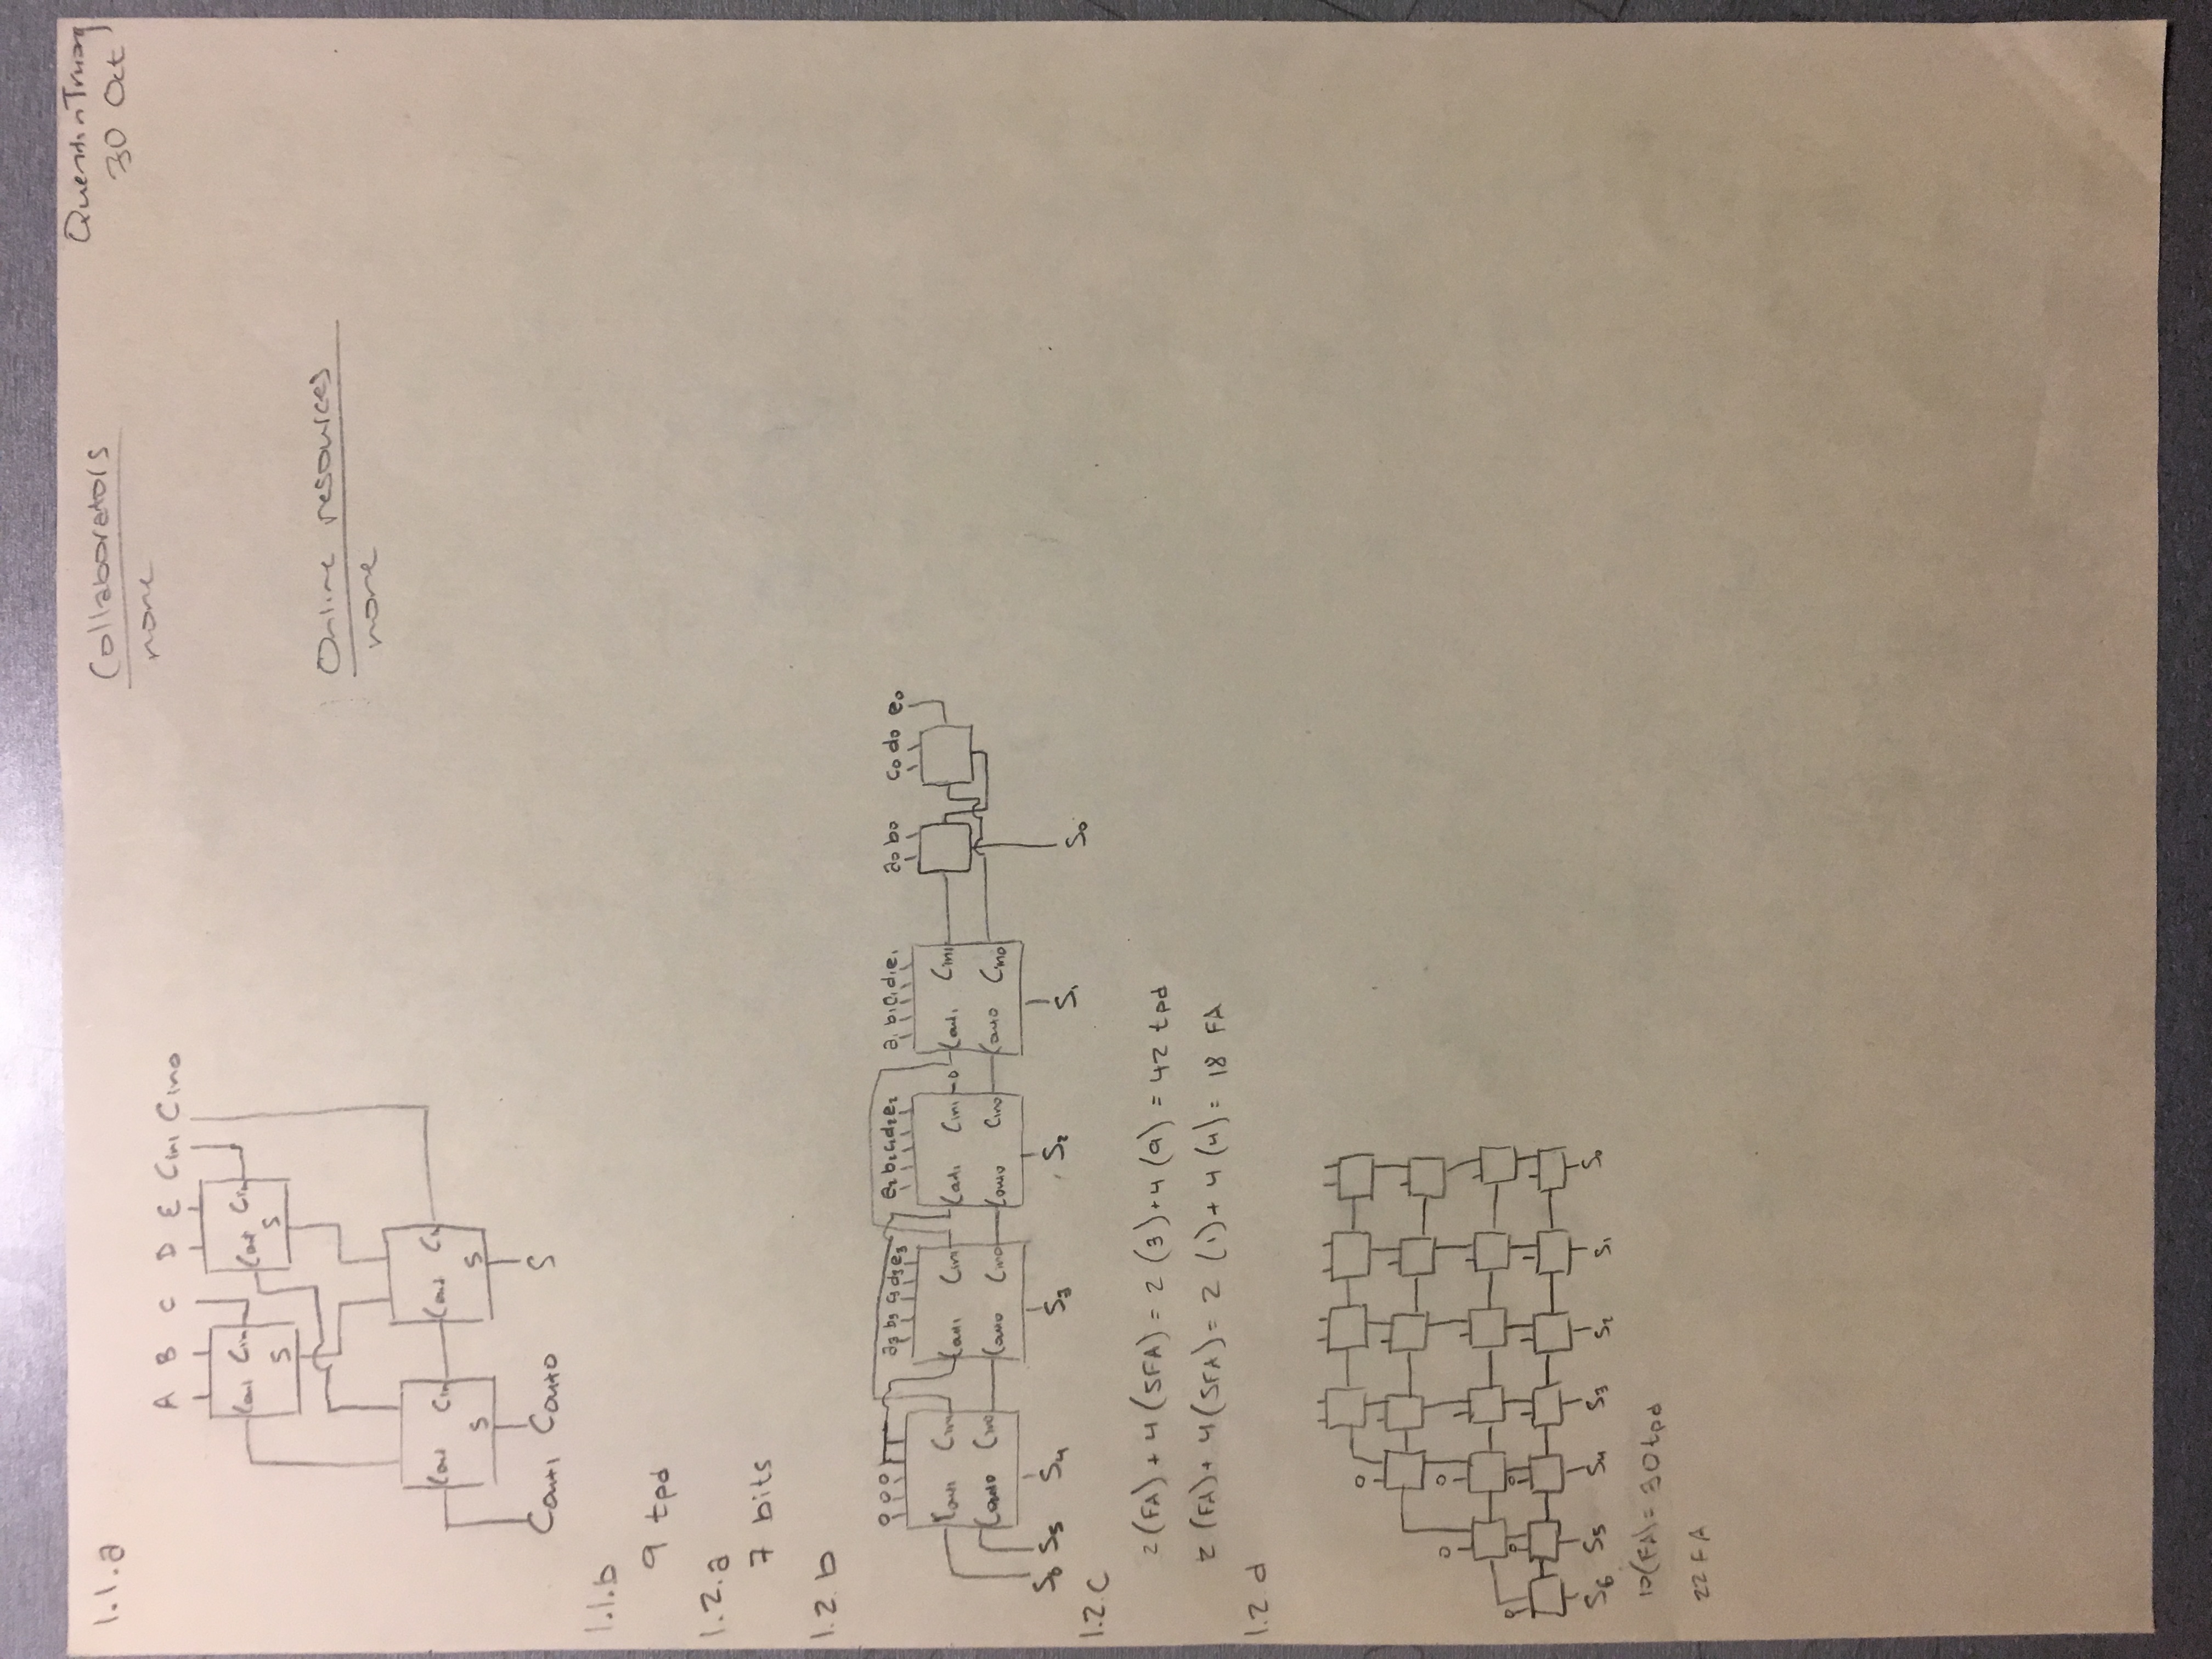 1.1.a
Collaborators
none
Quentin Truong
30 Oct
Online resources
none
A B C D E Cin1 Cin0
Cout Cin Cout Cin
S S
Cout Cin Cout Cin
S S
Cout1 Cout0 S
1.1.b
9 tpd
1.2.a
7 bits
1.2.b
0 0 0 a3 b3 c3 d3 e3 e2 b2 c2 d2 e2 a1 b1 c1 d1 e1 a0 b0 c0 d0 e0
Cout1 Cin1 Cout1 Cin1 Cout1 Cin1 0 Cout1 Cin1
Cout0 Cin0 Cout0 Cin0 Cout0 Cin0 Cout0 Cin0
S6 S5 S4 S3 S2 S1 S0
1.2.c
2(FA) + 4(5FA) = 2(3)+4(9) = 42 tpd
2(FA) + 4(5FA) = 2(1)+4(4) = 18 FA
1.2.d
0
0 0
0 0 0
S6 S5 S4 S3 S2 S1 S0
10(FA) = 30tpd
22 FA